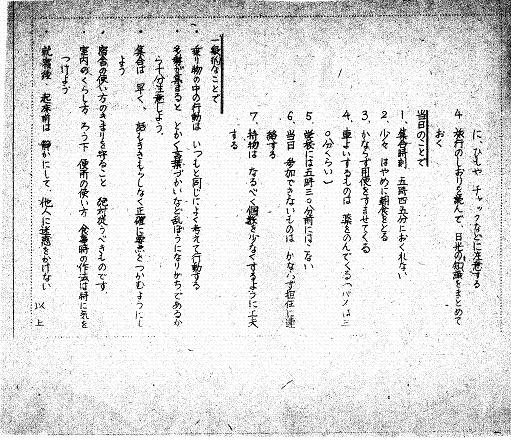 に、ひもや チャックなどに注意する
4. 旅行のしおりを読んで 日光の知識をまとめて
おく
当日のことで
1. 集合時刻 五時四五分におくれない
2. 少々 はやめに朝食をとる
3. かならず用便をすませてくる
4. 車よいするものは 薬をのんでくる（バスは三
〇分くらい）
5. 学校には五時三〇分前にはこない
6. 当日 参加できないものは かならず担任に連
絡する
7. 持物は なるべく個数を少なくするように工夫
する
一般的なことで
・乗り物の中の行動は いつもと同じによく考えて行動する
・多勢が集まると とかく言葉づかいなど乱ぼうになりがちであるか
ら十分注意しよう。
・集合は 早く、話しをきちんとしなく正確に要点をつかむようにし
よう
・宿舎の使い方のきまりを守ること 絶対従うべきものです。
・室内のくらし方 ろう下 便所の使い方 食事時の作法は特に気を
つけよう
・就寝後 起床前は 静かにして 他人に迷惑をかけない
以上